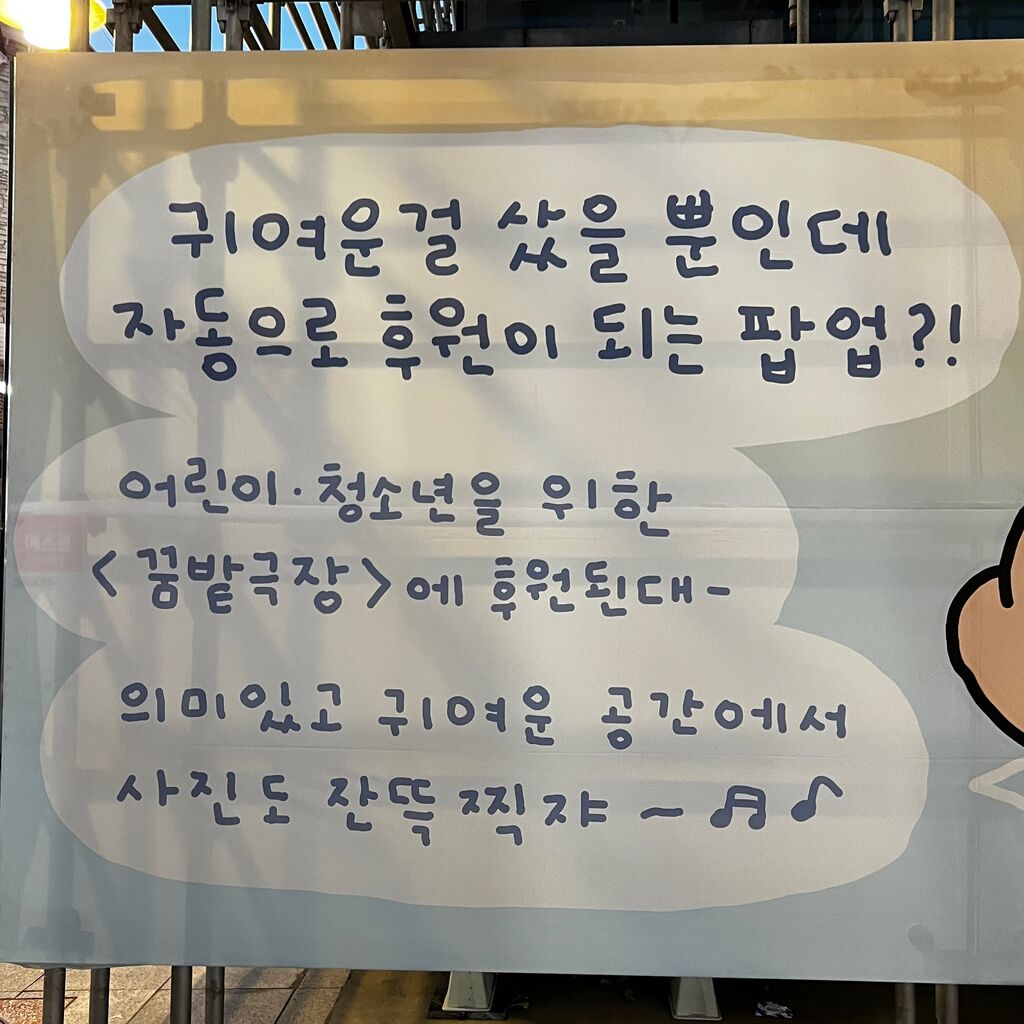 귀여운걸 샀을 뿐인데
자동으로 후원이 되는 팝업?!
어린이·청소년을 위한
<꿈밭극장>에 후원된대-
의미있고 귀여운 공간에서
사진도 잔뜩 찍쟈 ~ ♬♪